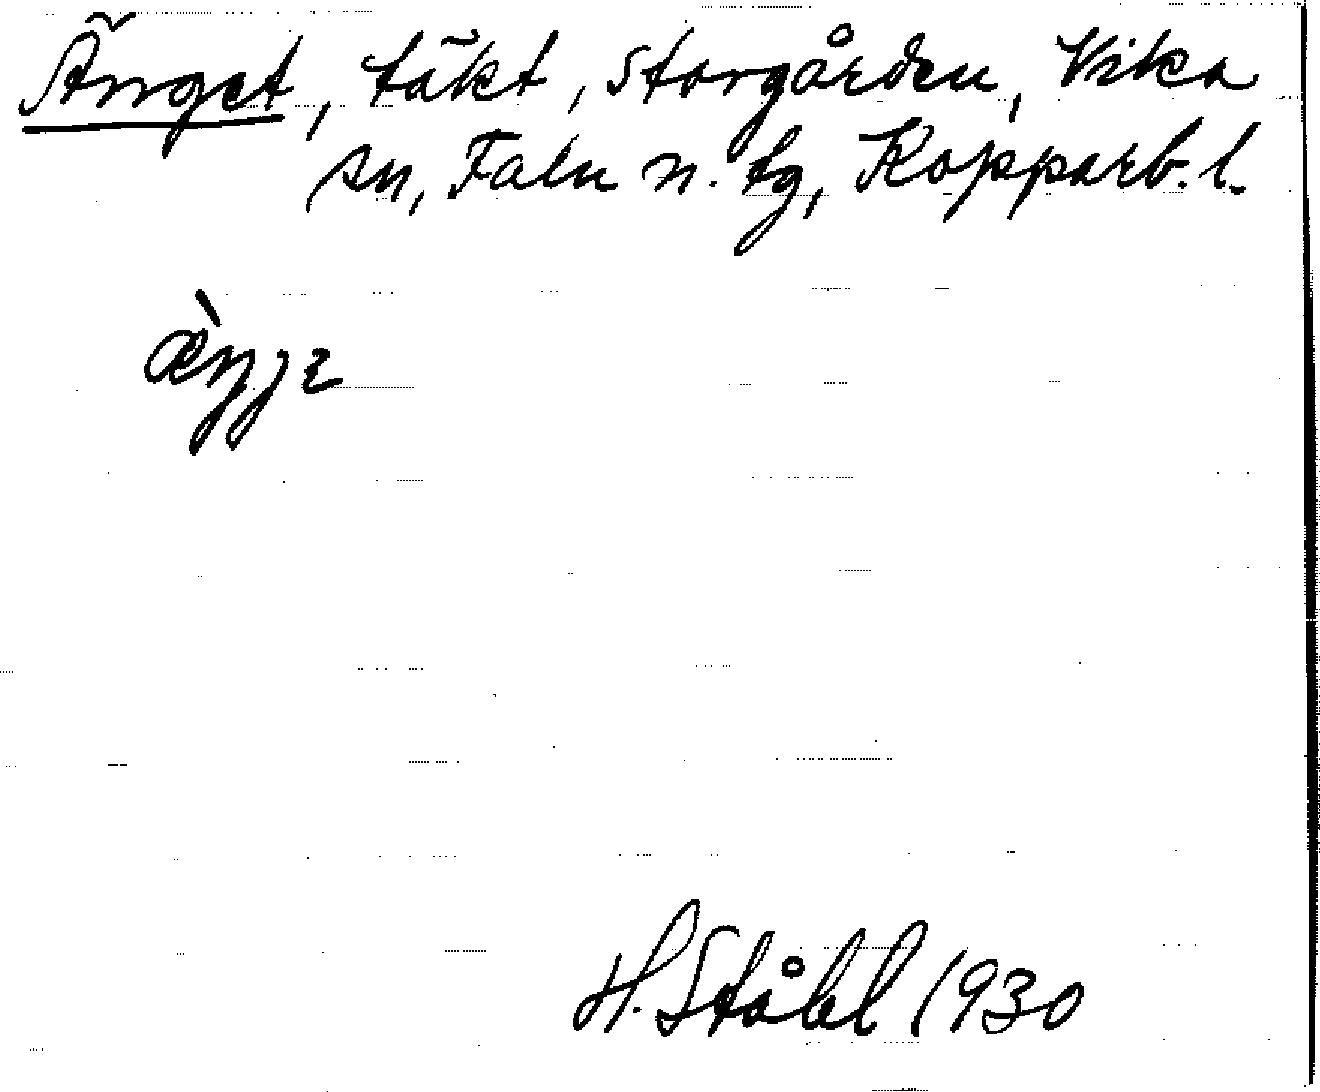 Änget, täkt, Storgården, Vika
sn, Falu n. tg, Kopparb. l.
æ̀ŋjɛ
H. Ståhl 1930